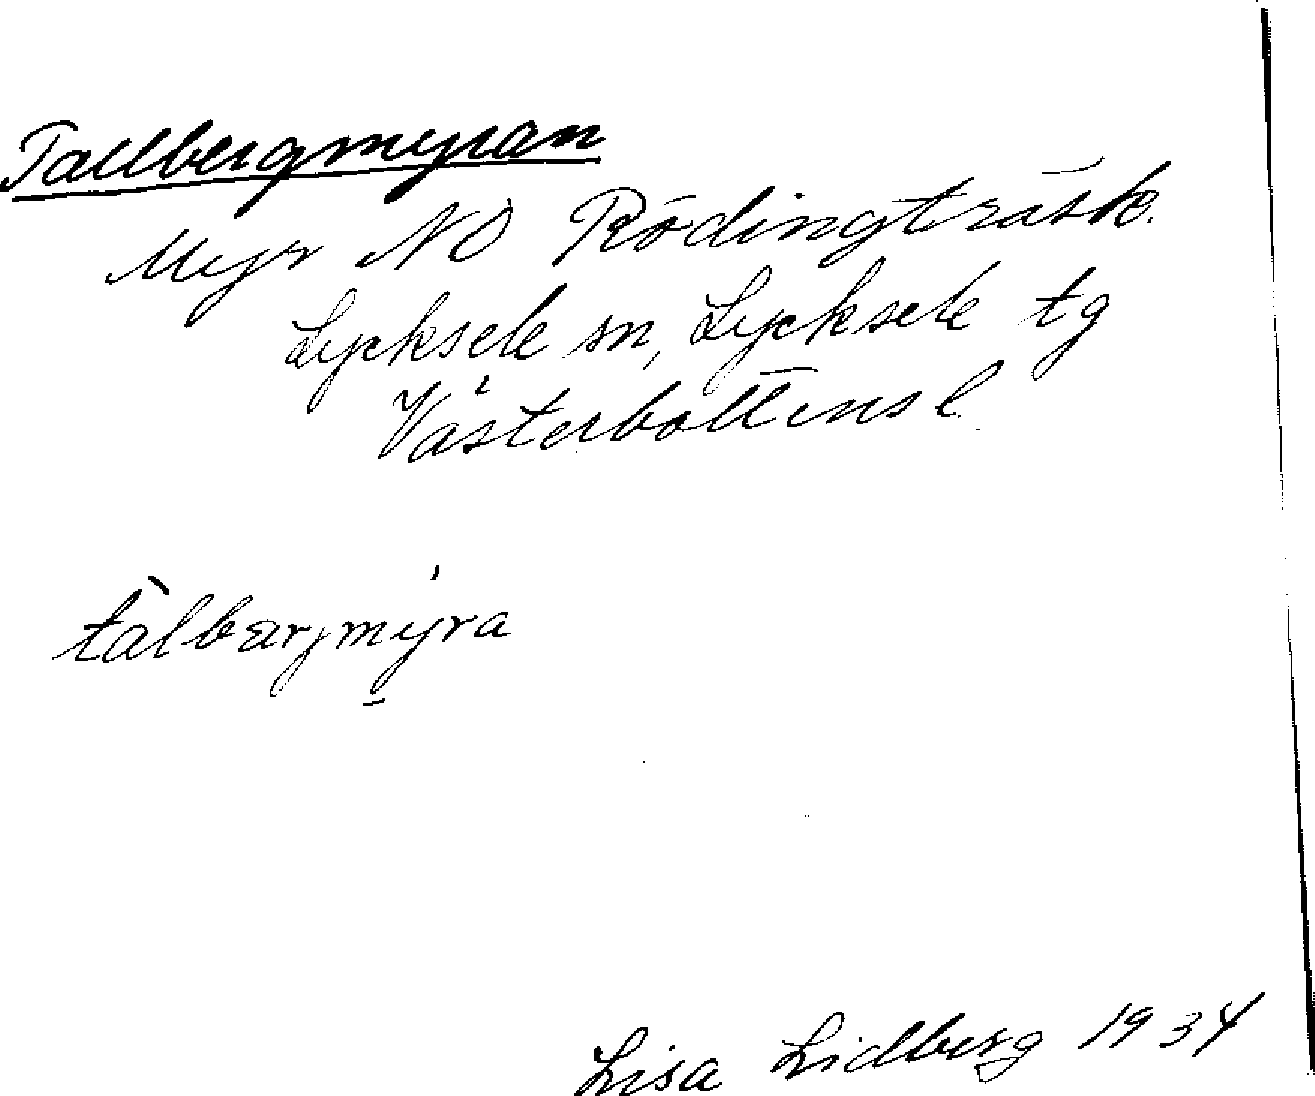 Tallbergmyran
Myr NO Rödingträsk.
Lycksele sn, Lycksele tg
Västerbottensl
tàlbærjmýra
Lisa Lidberg 1934